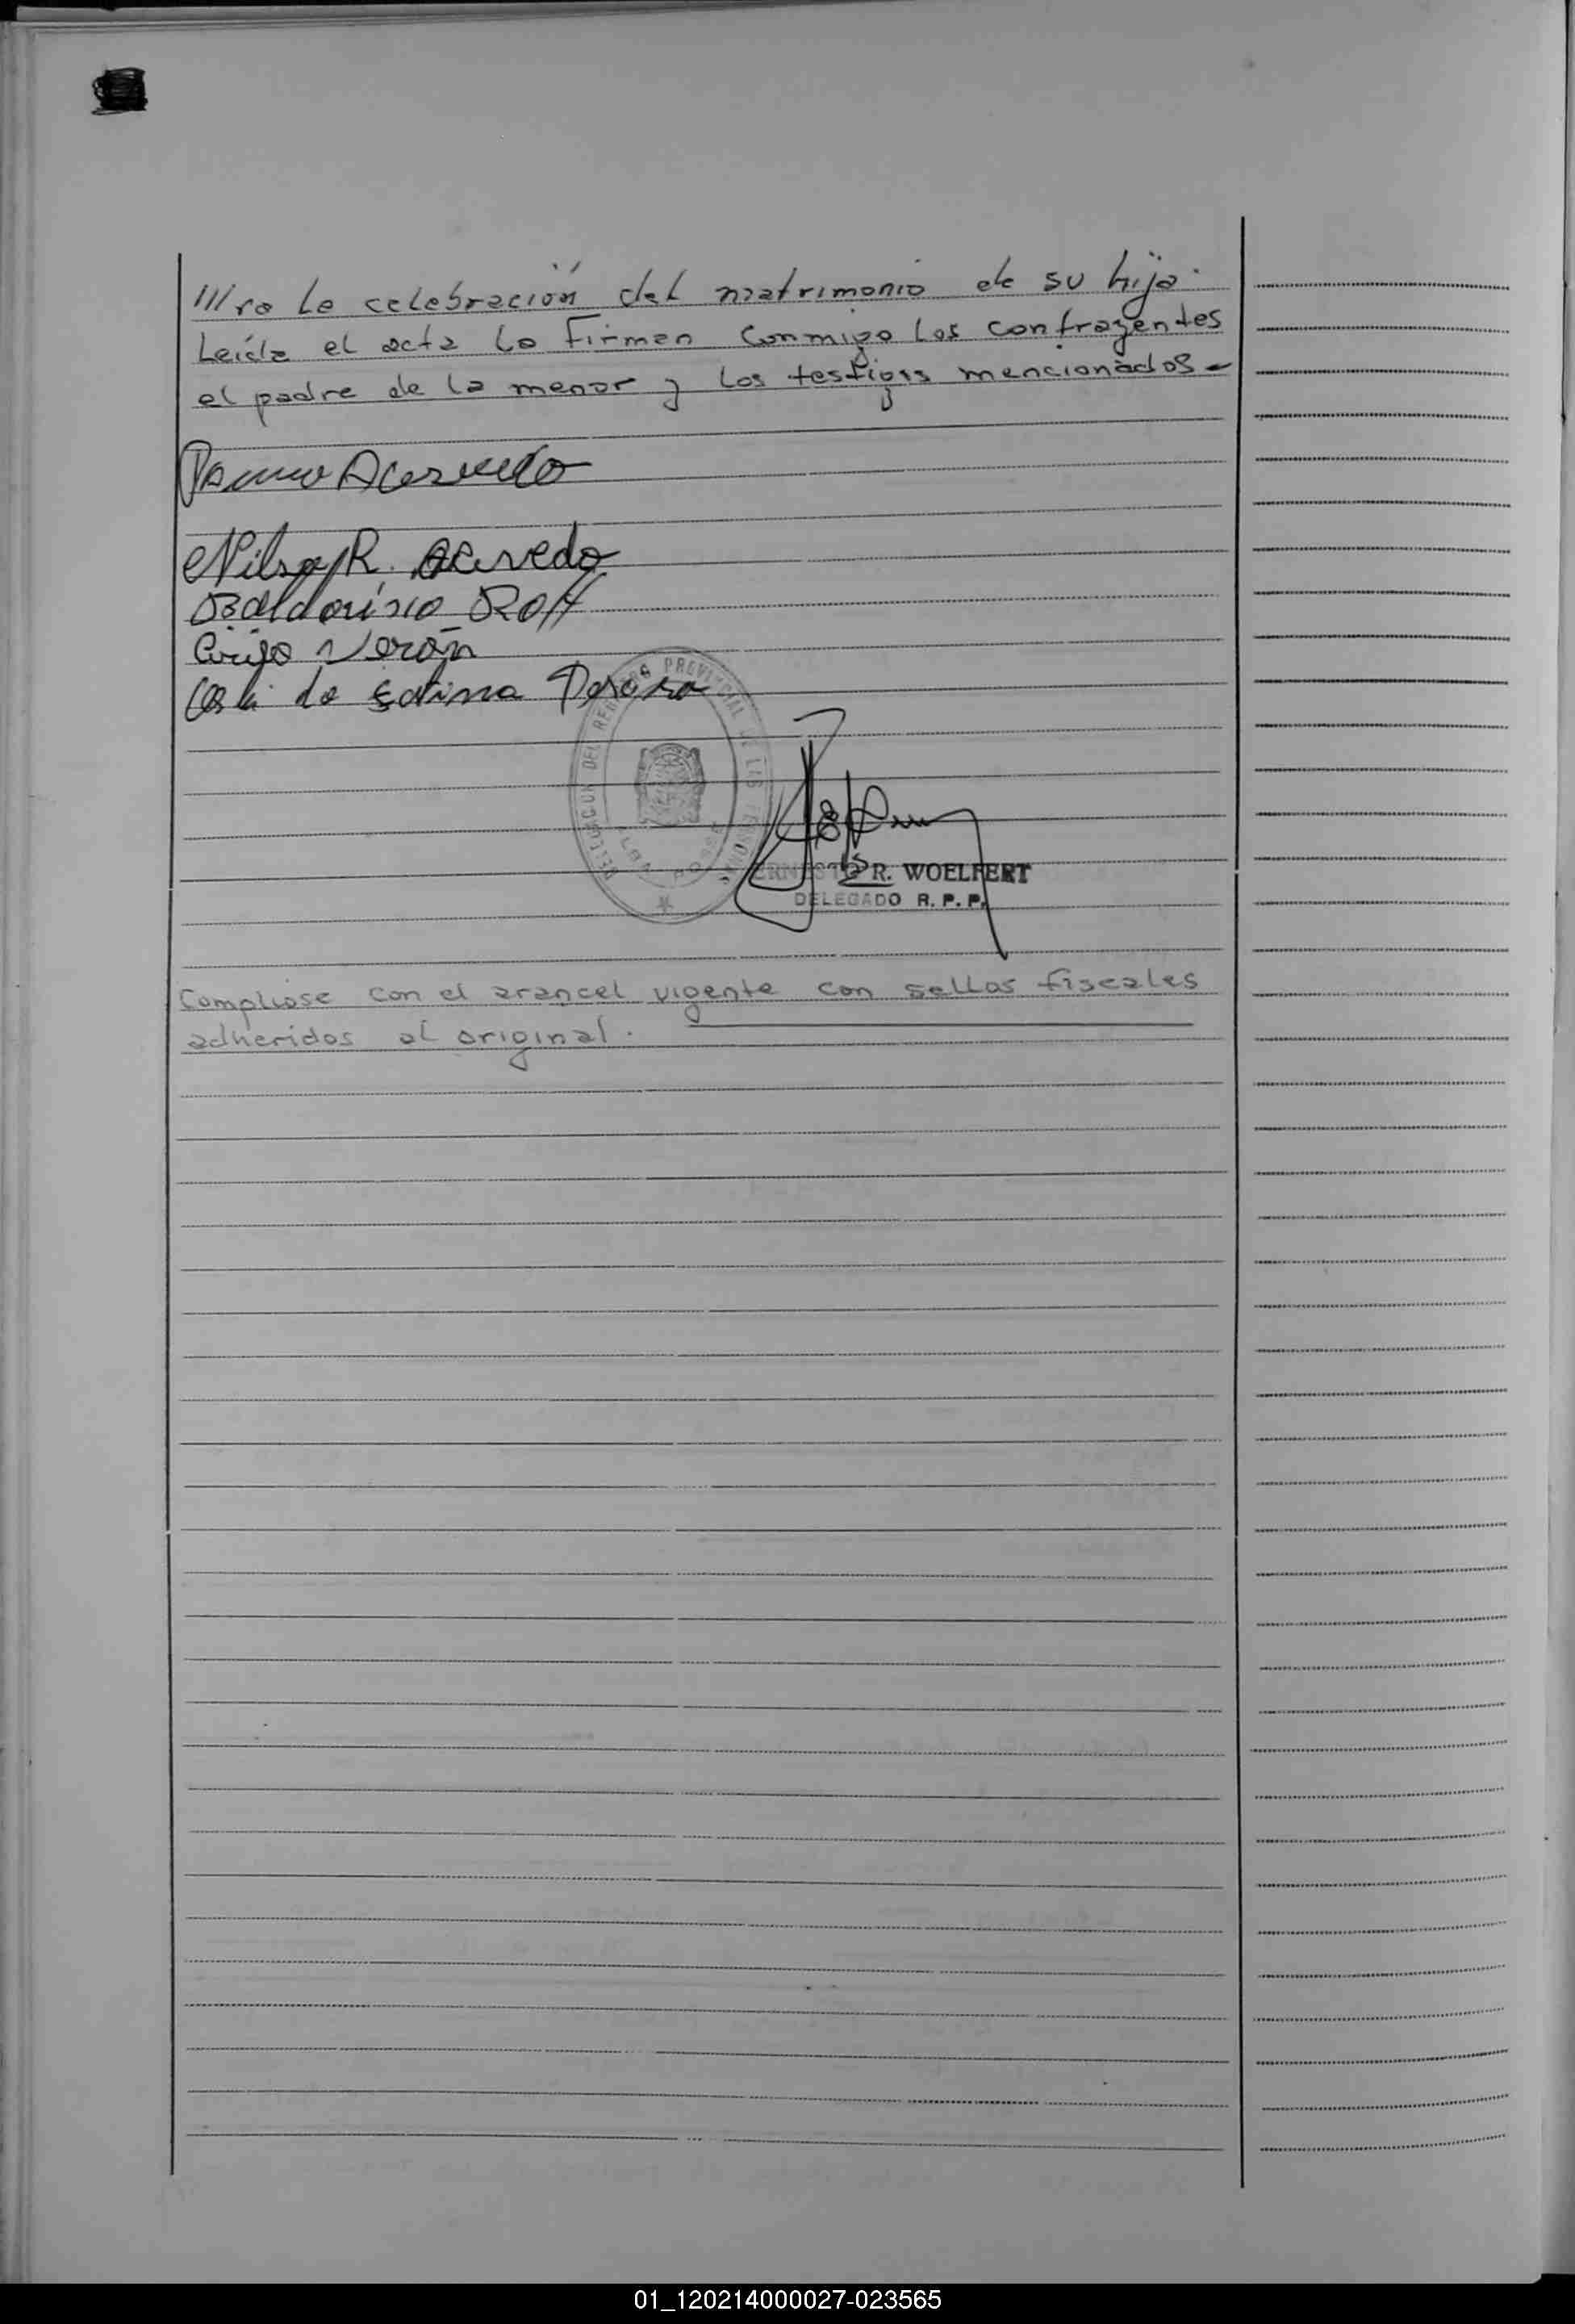 ///ra la celebración del matrimonio de su hija.
Leída el acta la firman conmigo los contrayentes
el padre de la menor y los testigos mencionados -
Acevedo
Nilsa R. Acevedo
Baldovisio Roff
Cirijo Verón
de Fatima Pereira
DELEGACION DEL REGISTRO PROVINCIAL DE LAS PERSONAS
ERNESTO R. WOELFERT
DELEGADO R. P. P.
Compliose con el arancel vigente con sellos fiscales
adheridos al original.
01_120214000027-023565